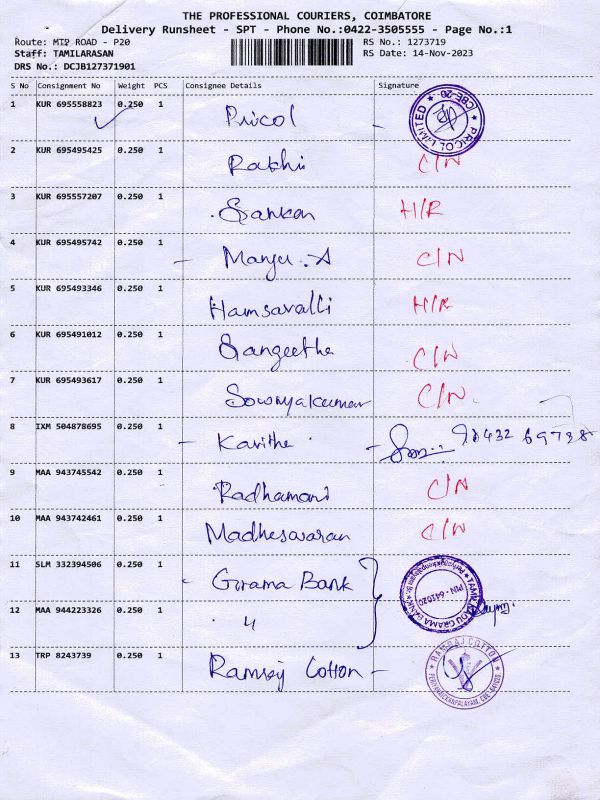 THE PROFESSIONAL COURIERS, COIMBATORE
Delivery Runsheet - SPT - Phone No.:0422-3505555 - Page No.:1
Route: MTP ROAD - P20 RS No.: 1273719
Staff: TAMILARASAN RS Date: 14-Nov-2023
DRS No.: DCJB127371901
S No Consignment No Weight PCS Consignee Details Signature
1 KUR 695558823 0.250 1 Pricol PRICOL LIMITED CBE-20
2 KUR 695495425 0.250 1 Rakhi C/N
3 KUR 695557207 0.250 1 Sankar H/R
4 KUR 695495742 0.250 1 Manju .A C/N
5 KUR 695493346 0.250 1 Hamsavalli H/R
6 KUR 695491012 0.250 1 Sangeetha C/N
7 KUR 695493617 0.250 1 Sowmyakumar C/N
8 IXM 504878695 0.250 1 Kavitha
9 MAA 943745542 0.250 1 Radhamani C/N
10 MAA 943742461 0.250 1 Madheswaran C/N
11 SLM 332394506 0.250 1 Grama Bank TAMIL NADU GRAMA BANK PIN - 641020
12 MAA 944223326 0.250 1 "
13 TRP 8243739 0.250 1 Ramraj Cotton RAMRAJ COTTON PERIYANAICKENPALAYAM, CBE-641020.